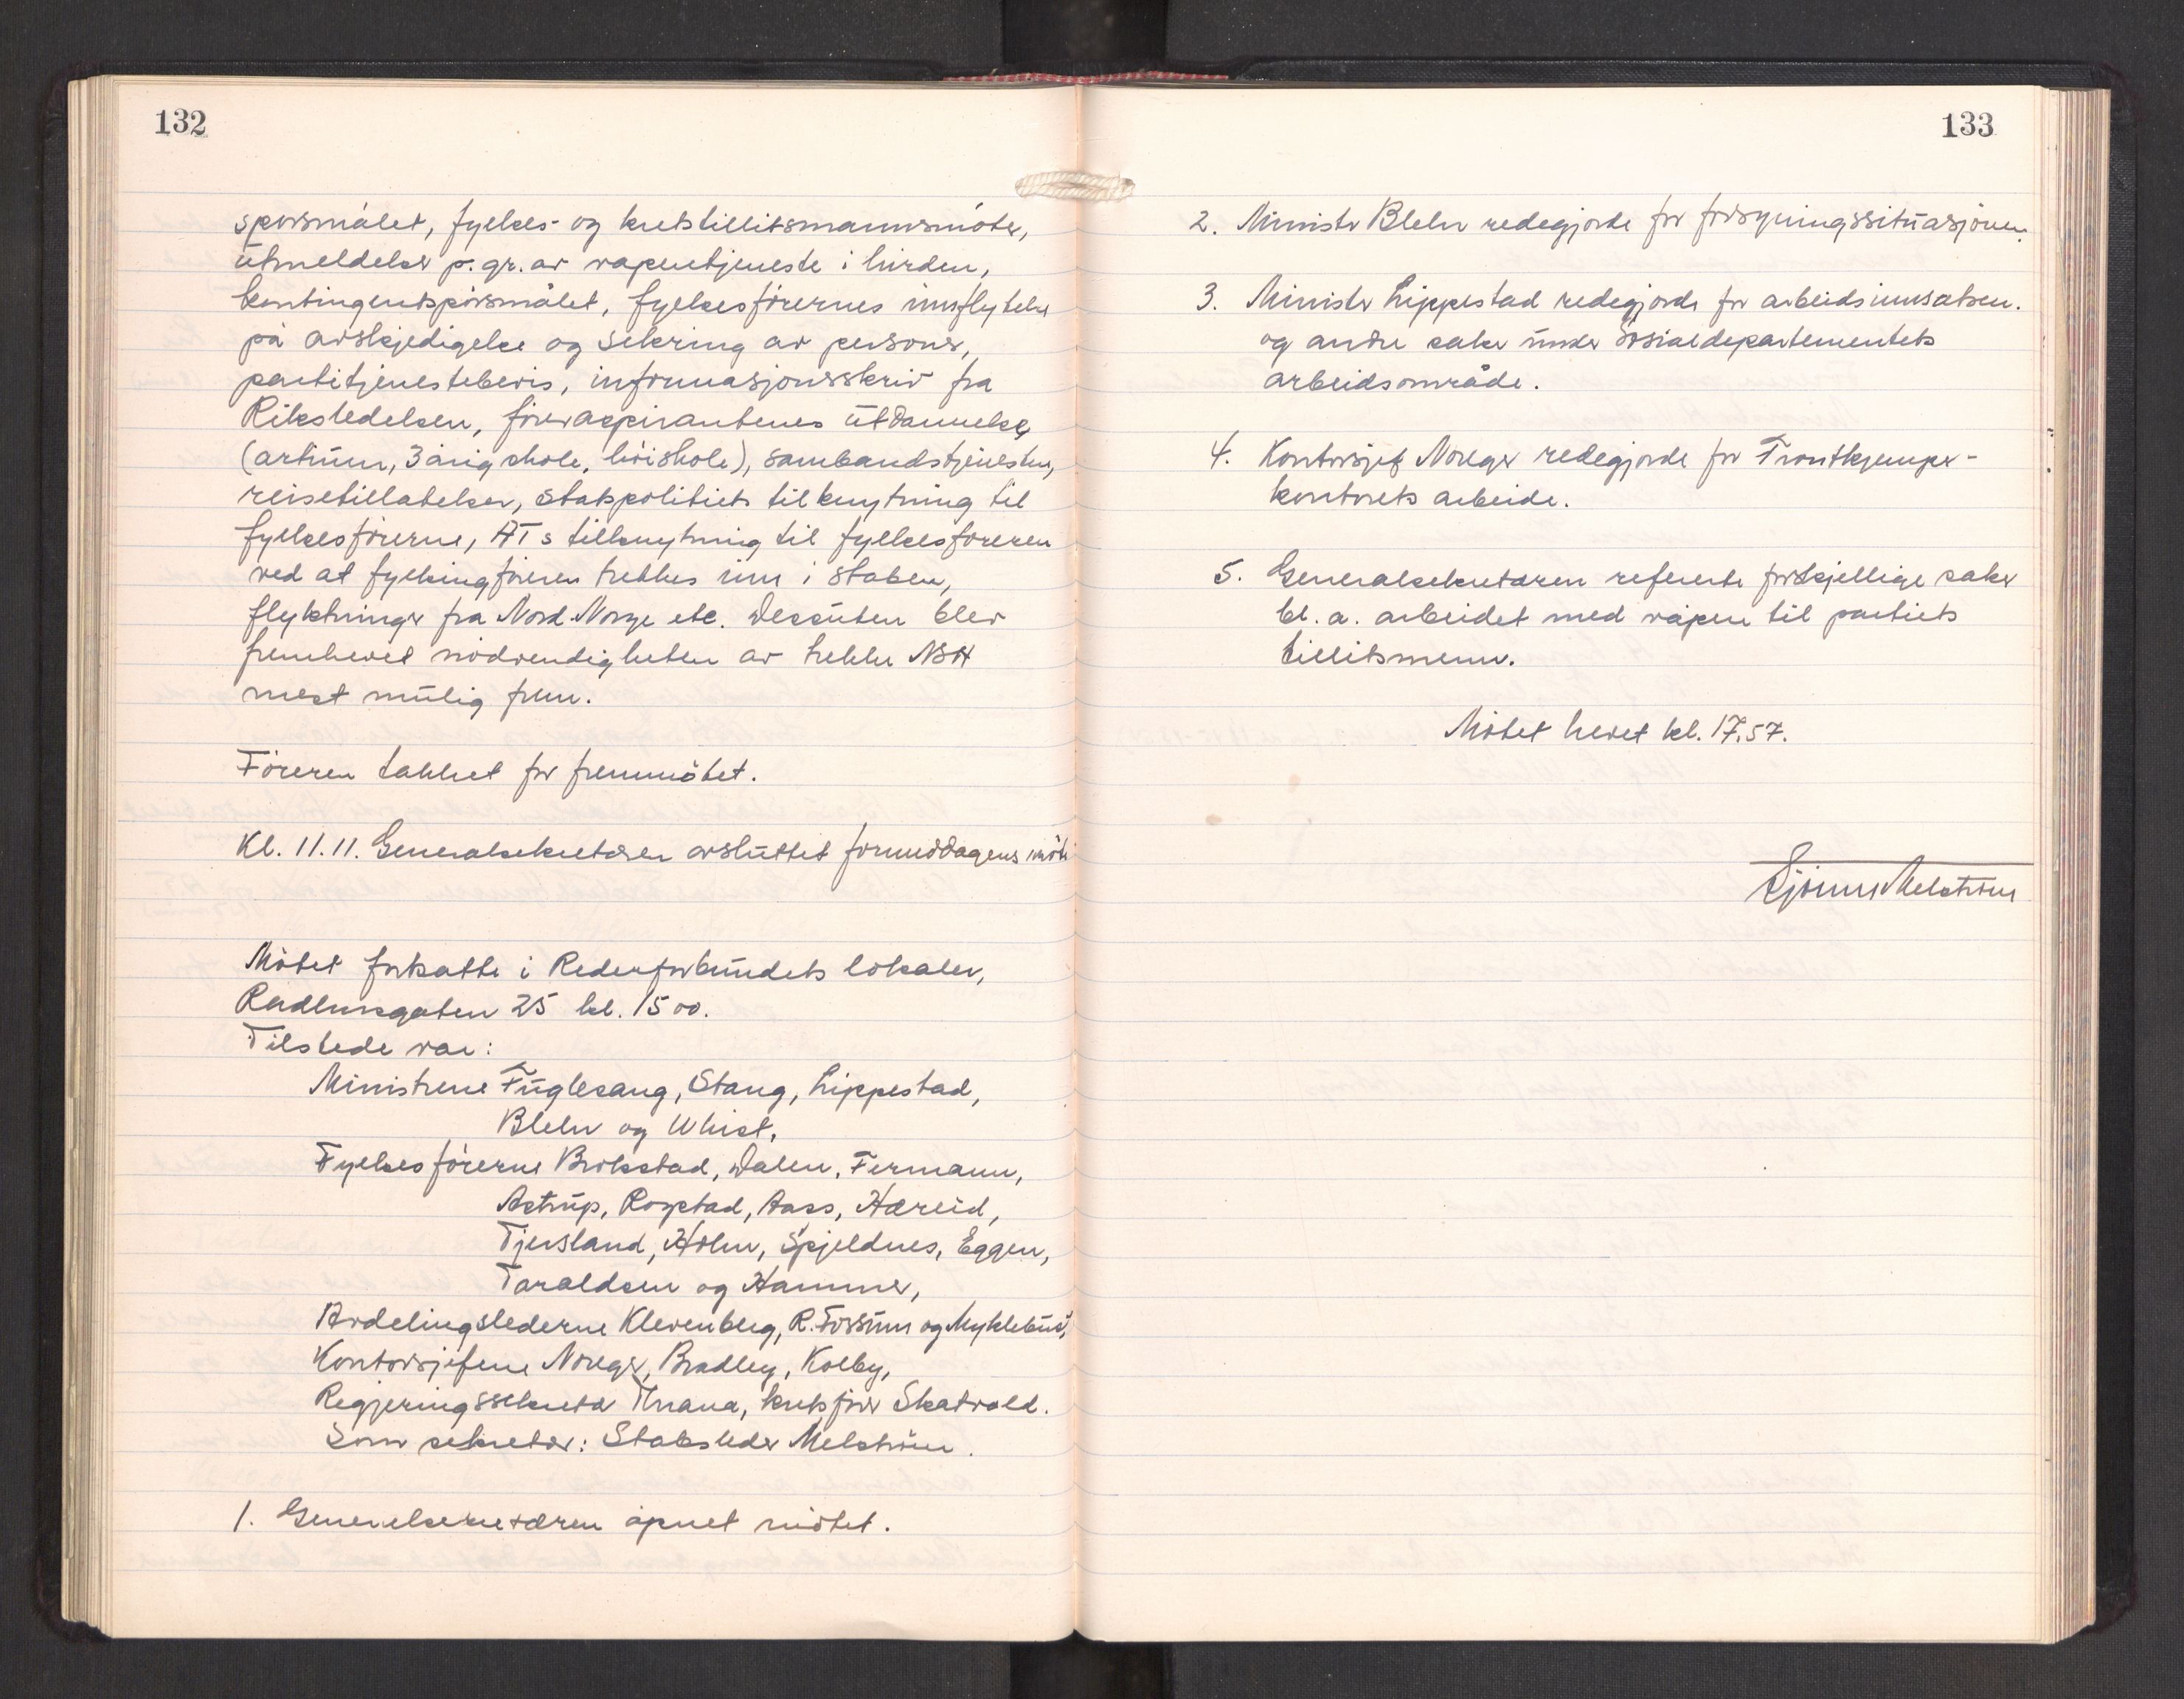 132
spørsmålet, fylkes- og kretstillitsmannsmøter,
utmeldelser p. gr. av vapentjeneste i hirden,
kontingentspørsmålet, fylkesførernes innflytelse
på avskjedigelse og sikring av personer,
partitjenestebevis, informasjonsskriv fra
Riksledelsen, føreraspirantenes utdannelse
(artium, 3 årig skole, høiskole), sambandstjenesten,
reisetillatelser, statspolitiets tilknytning til
fylkesførerne, ATs tilknytning til fylkesføreren
ved at fylkingføreren trekkes inn i staben,
flyktninger fra Nord-Norge etc. Dessuten blev
fremhevet nødvendigheten av trekke NSH
mest mulig frem.
Føreren takket for fremmøtet.
Kl. 11.11. Generalsekretæren avsluttet formiddagens møte
Møtet fortsatte i Rederforbundets lokaler,
Rådhusgaten 25 kl. 15 00.
Tilstede var:
Ministrene Fuglesang, Stang, Lippestad,
Blehr og Whist,
Fylkesførerne Brokstad, Dalen, Fermann,
Astrup, Rogstad, Aass, Hæreid,
Tjersland, Holm, Spjeldnes, Eggen,
Taraldsen og Hammer,
Avdelingslederne Klevenberg, R. Fossum og Myklebust,
Kontorsjefene Noreger, Bradley, Kolby,
Regjeringssekretær Thrana, kretsfører Skatvold.
Som sekretær: Stabsleder Melstrøm.
1. Generalsekretæren åpnet møtet.
133
2. Minister Blehr redegjorde for forsyningssituasjonen.
3. Minister Lippestad redegjorde for arbeidsinnsatsen.
og andre saker under Sosialdepartementets
arbeidsområde.
4. Kontorsjef Noreger redegjorde for Frontkjemper-
kontorets arbeide.
5. Generalsekretæren refererte forskjellige saker
bl. a. arbeidet med våpen til partiets
tillitsmenn.
Møtet hevet kl. 17.57.
Melstrøm